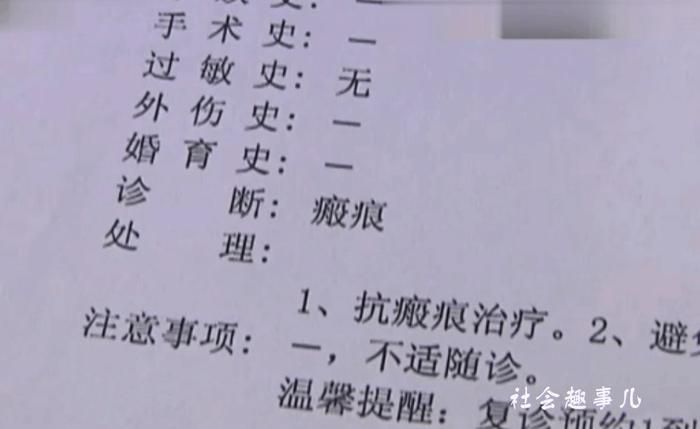 史：一
手术史：一
过敏史：无
外伤史：一
婚育史：一
诊断：瘢痕
处理：
1、抗瘢痕治疗。2、避免
注意事项：一，不适随诊。
温馨提醒：复诊预约1到
社会趣事儿